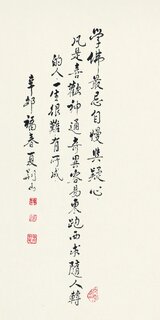 學佛最忌自慢與疑心
凡是喜歡神通奇異容易東跑西求隨人轉
的人一生很難有所成
辛卯福春夏荊山